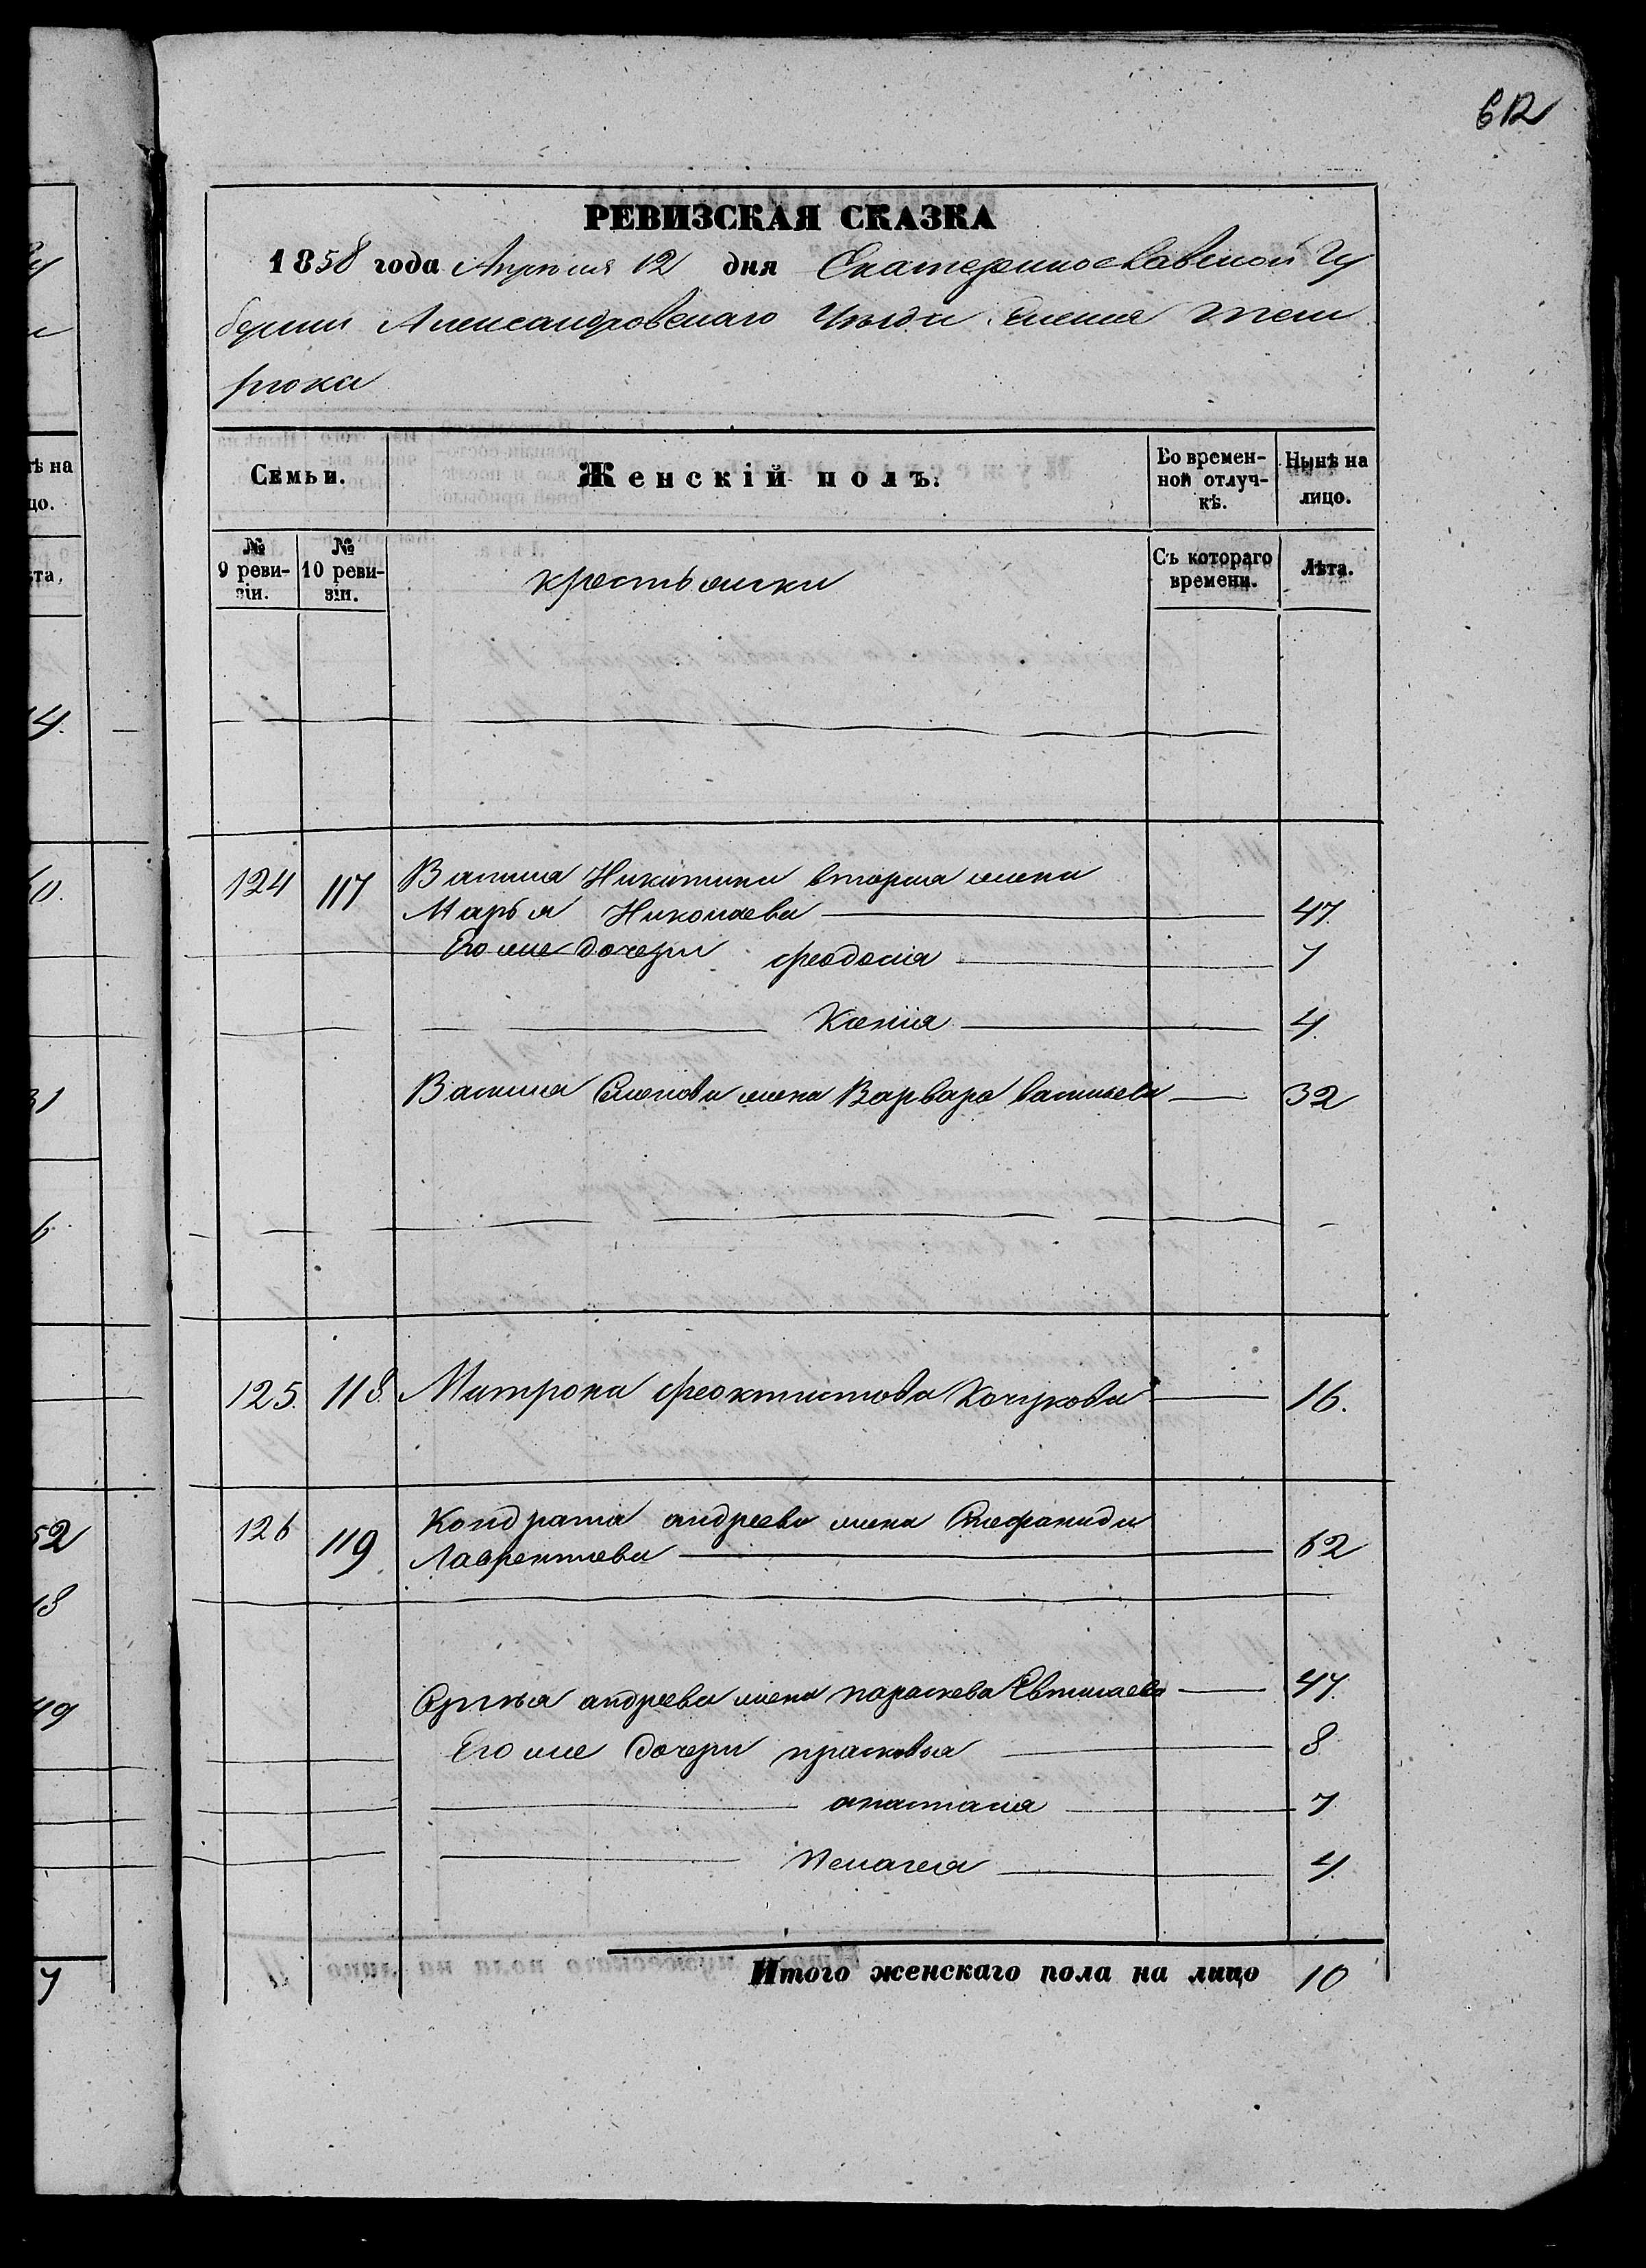 612
РЕВИЗСКАЯ СКАЗКА
1858 года Апреля 12 дня Екатеринославской Гу
бернии Александровскаго Уезда Селения Тем
рюка
Семьи.
Женскій полъ.
Во времен-
ной отлуч-
кѣ.
Нынѣ на
лицо.
№
9 реви-
зіи.
№
10 реви-
зіи.
крестьянки
Съ котораго
времени.
Лѣта.
124 117 Василия Никитина вторая жена
Марья Николаева 47.
Его же дочери феодосия 7
Ксения 4.
Василия Семенова жена Варвара васильева 32
125. 118. Матрона феоктистова Кочукова 16.
126 119 Кондрата андреева жена Стефанида
Лаврентиева 62
Сергея андреева жена параскева Евтихиева 47.
Его же дочери прасковья 8
анастасия 7.
Пелагея 4.
Итого женскаго пола на лицо 10